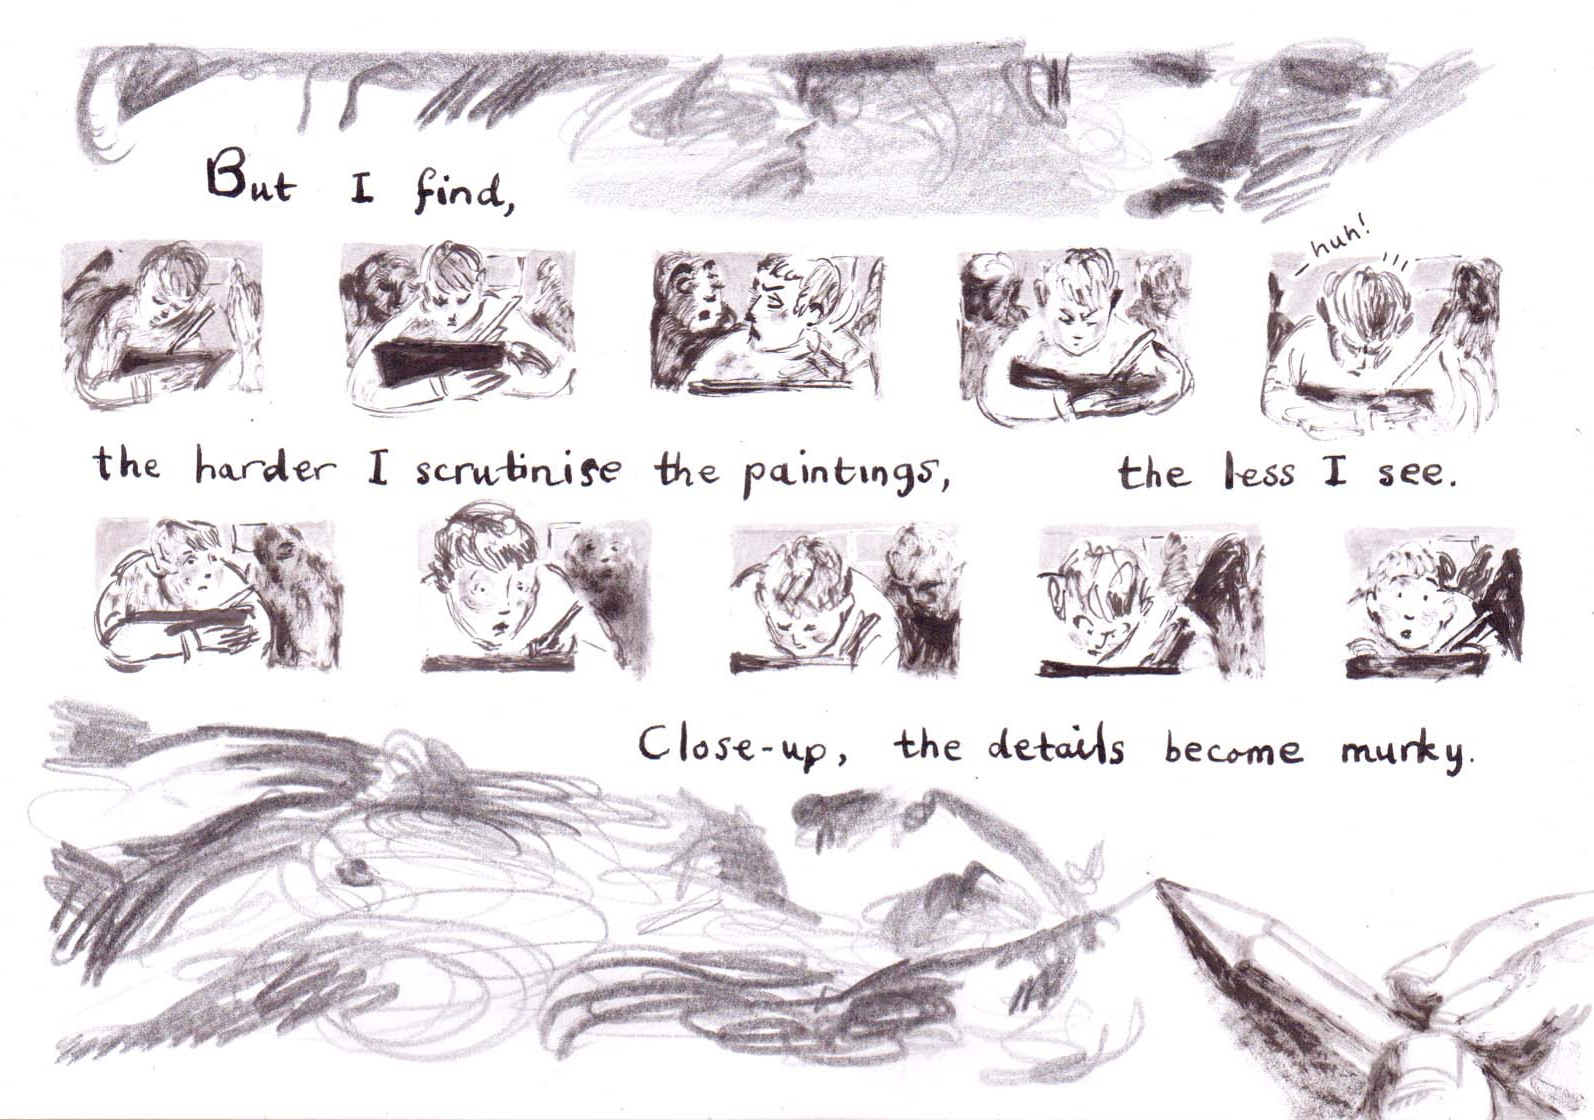 But I find,
huh!
the harder I scrutinise the paintings, the less I see.
Close-up, the details become murky.